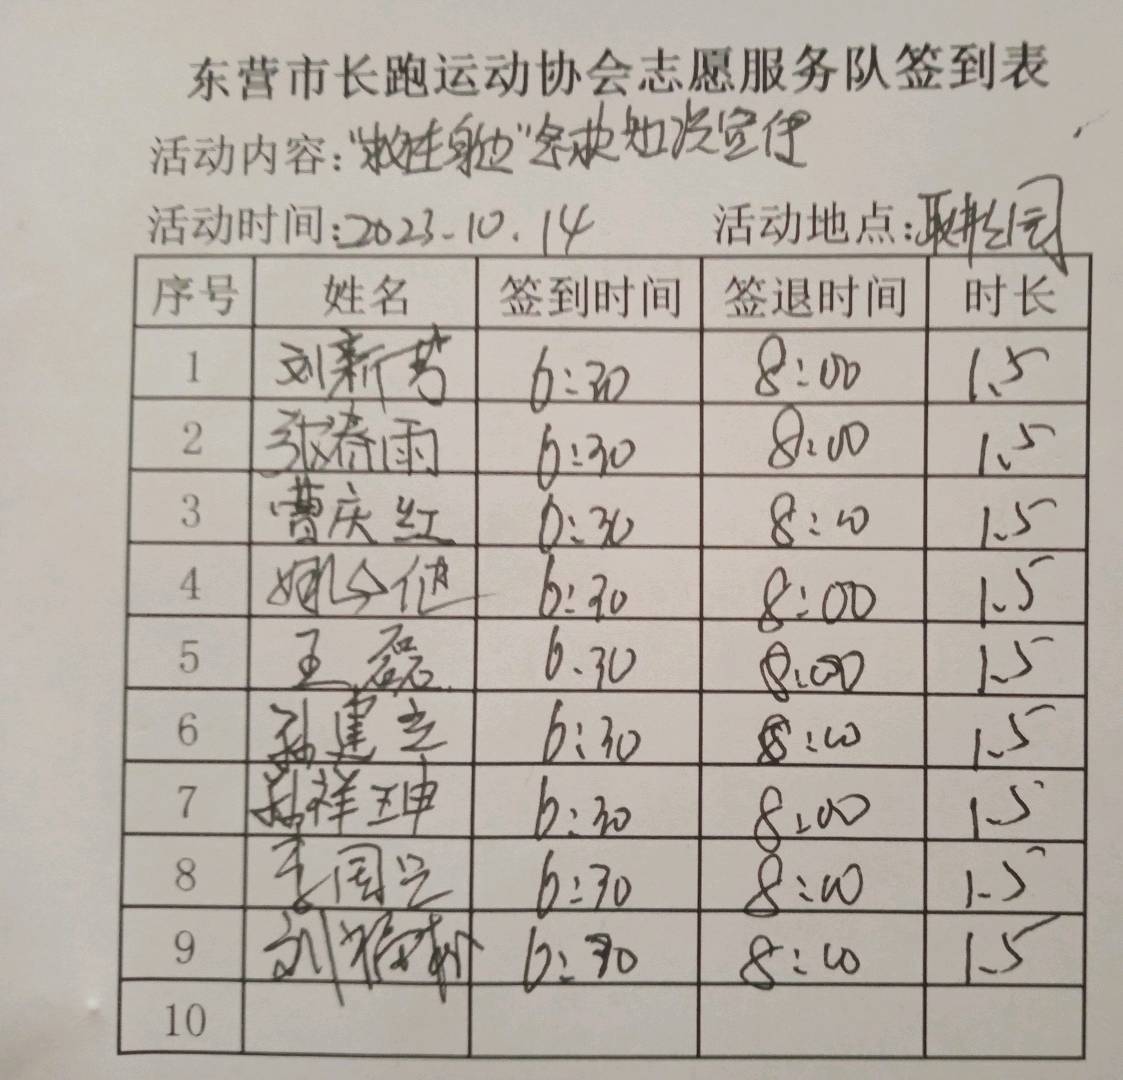 东营市长跑运动协会志愿服务队签到表
活动内容:"救在身边"急救知识宣传
活动时间:2023.10.14 活动地点:
序号 姓名 签到时间 签退时间 时长
1 刘新芳 6:30 8:00 1.5
2 张春雨 6:30 8:00 1.5
3 曹庆红 6:30 8:00 1.5
4 6:30 8:00 1.5
5 王磊 6:30 8:00 1.5
6 孙建 6:30 8:00 1.5
7 孙祥珅 6:30 8:00 1.5
8 李国 6:30 8:00 1.5
9 刘 6:30 8:00 1.5
10